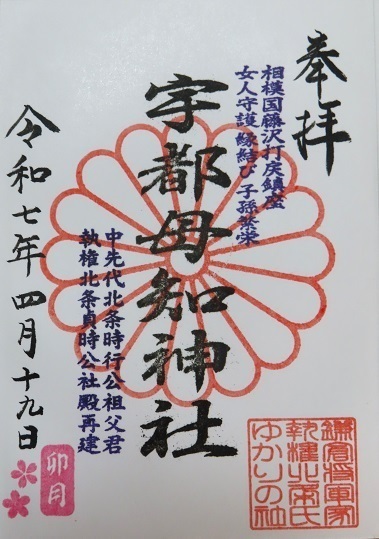 奉拝
相模国藤沢打戻鎮座
女人守護 縁結び 子孫繁栄
宇都母知神社
中先代北条時行公祖父君
執権北条貞時公社殿再建
令和七年四月十九日
卯月
鎌倉将軍家
執権北条氏
ゆかりの社